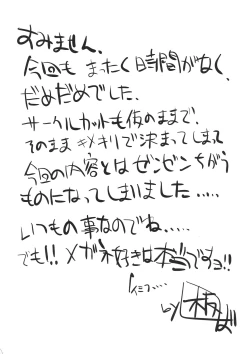 すみません、
今回も まったく時間がなく、
だめだめでした。
サークルカットも仮のままで、
そのまま〆キリで決まってしまって
今回の内容とはゼンゼンちがう
ものになってしまいました……
いつもの事なのでね……
でも!! メガネ好きは本当ですョ!!
by